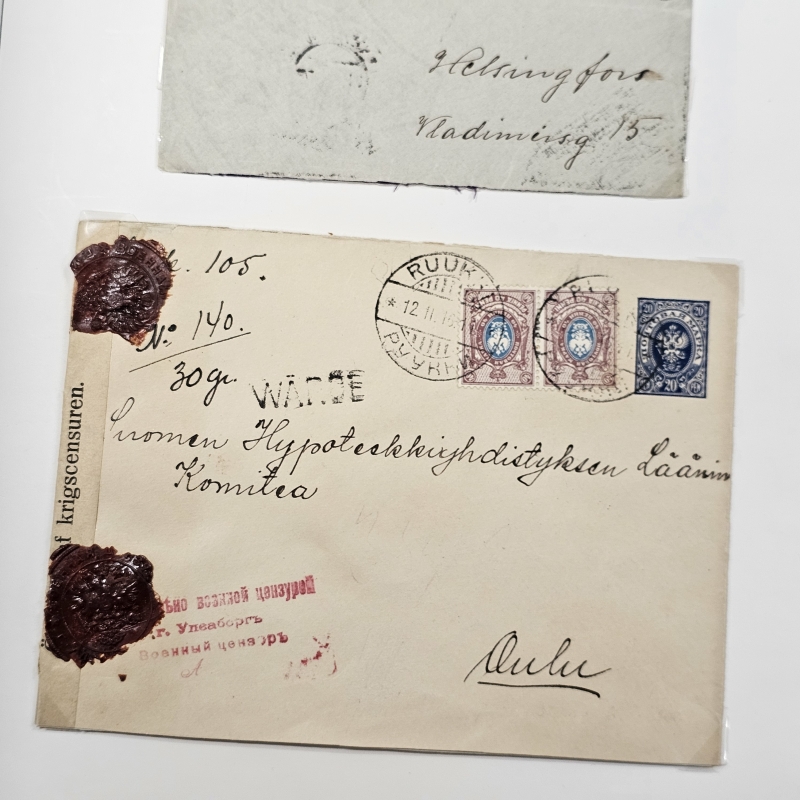 Helsingfors
Vladimirsg 15
105.
No 140.
30gr.
WÄRDE
RUUKKI
* 12.II.16
PYYRH
20 20
ПОЧТОВАЯ МАРКА
20
Suomen Hypoteekkiyhdistyksen Läänin
Komitea
Oulu
af krigscensuren.
военной цензурой
г. Улеаборгъ
Военный цензоръ